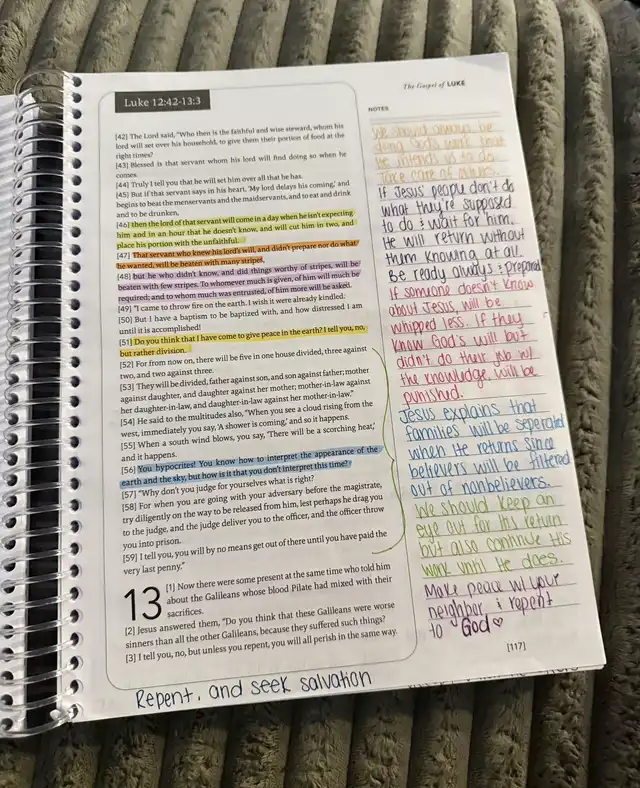 The Gospel of LUKE
Luke 12:42-13:3
[42] The Lord said, "Who then is the faithful and wise steward, whom his
lord will set over his household, to give them their portion of food at the
right times?
[43] Blessed is that servant whom his lord will find doing so when he
comes.
[44] Truly I tell you that he will set him over all that he has.
[45] But if that servant says in his heart, 'My lord delays his coming,' and
begins to beat the menservants and the maidservants, and to eat and drink
and to be drunken,
[46] then the lord of that servant will come in a day when he isn't expecting
him and in an hour that he doesn't know, and will cut him in two, and
place his portion with the unfaithful.
[47] That servant who knew his lord's will, and didn't prepare nor do what
he wanted, will be beaten with many stripes,
[48] but he who didn't know, and did things worthy of stripes, will be
beaten with few stripes. To whomever much is given, of him will much be
required; and to whom much was entrusted, of him more will be asked.
[49] "I came to throw fire on the earth. I wish it were already kindled.
[50] But I have a baptism to be baptized with, and how distressed I am
until it is accomplished!
[51] Do you think that I have come to give peace in the earth? I tell you, no,
but rather division.
[52] For from now on, there will be five in one house divided, three against
two, and two against three.
[53] They will be divided, father against son, and son against father; mother
against daughter, and daughter against her mother; mother-in-law against
her daughter-in-law, and daughter-in-law against her mother-in-law."
[54] He said to the multitudes also, "When you see a cloud rising from the
west, immediately you say, 'A shower is coming,' and so it happens.
[55] When a south wind blows, you say, 'There will be a scorching heat,'
and it happens.
[56] You hypocrites! You know how to interpret the appearance of the
earth and the sky, but how is it that you don't interpret this time?
[57] "Why don't you judge for yourselves what is right?
[58] For when you are going with your adversary before the magistrate,
try diligently on the way to be released from him, lest perhaps he drag you
to the judge, and the judge deliver you to the officer, and the officer throw
you into prison.
[59] I tell you, you will by no means get out of there until you have paid the
very last penny."
13 [1] Now there were some present at the same time who told him
about the Galileans whose blood Pilate had mixed with their
sacrifices.
[2] Jesus answered them, "Do you think that these Galileans were worse
sinners than all the other Galileans, because they suffered such things?
[3] I tell you, no, but unless you repent, you will all perish in the same way.
Repent, and seek salvation
NOTES
We should always be
doing God's work that
he intends us to do.
Take care of others.
If Jesus people don't do
what they're supposed
to do & wait for him.
He will return without
them knowing at all.
Be ready always & prepared
If someone doesn't know
about Jesus, will be
whipped less. If they
know God's will but
didn't do their job w/
the knowledge, will be
punished.
Jesus explains that
families will be seperated
when He returns since
believers will be filtered
out of nonbelievers.
We should keep an
eye out for his return
but also continue His
work until He does.
Make peace w/ your
neighbor & repent
to God ♡
[117]